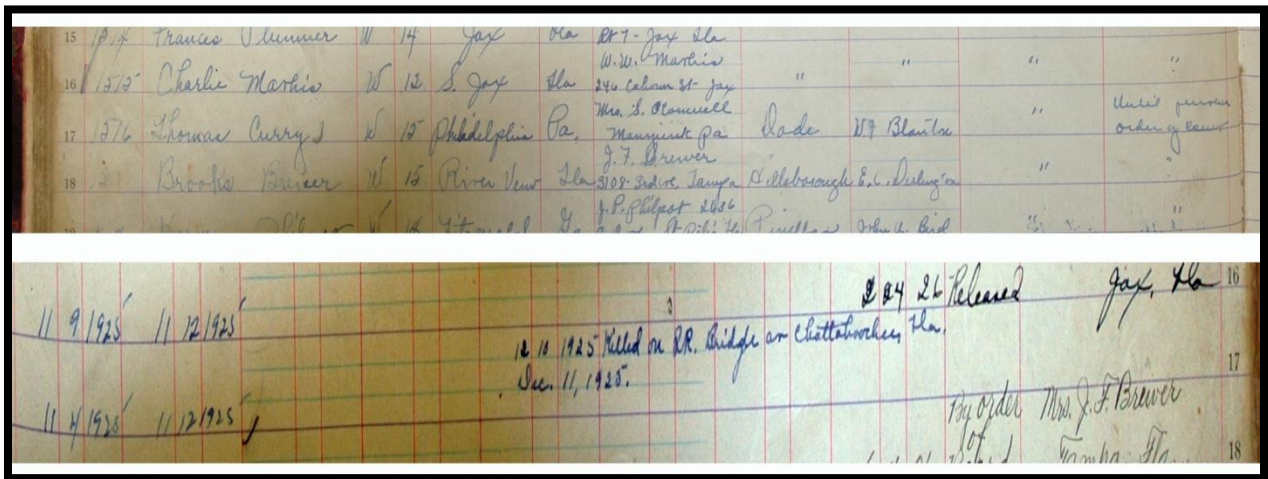 15 1514 Frances Plummer W 14 Jax Fla Rt 7 - Jax Fla
W. W. Mathis
16 1515 Charlie Mathis W 12 S. Jax Fla 246 Calhoun St - Jax " " " "
Mrs. S.
17 1516 Thomas Curry W 15 Philadelphia Pa. Manyunk Pa Dade W F " Until
order of court
J. F. Brewer
18 Brooks Brewer W 15 River View Fla 3108 - 3rd Ave. Tampa Hillsborough E. C. Darlington " "
J. P. Philpot 2636
W Ga Pinellas John U. Bird " "
24 26 Released Jax, Fla 16
11 9 1925 11 12 1925
12 10 1925 Killed on RR. Bridge on Chattahoochee, Fla.
Dec. 11, 1925. 17
11 4 1925 11 12 1925
By order Mrs. J. F. Brewer
of Tampa Fla 18